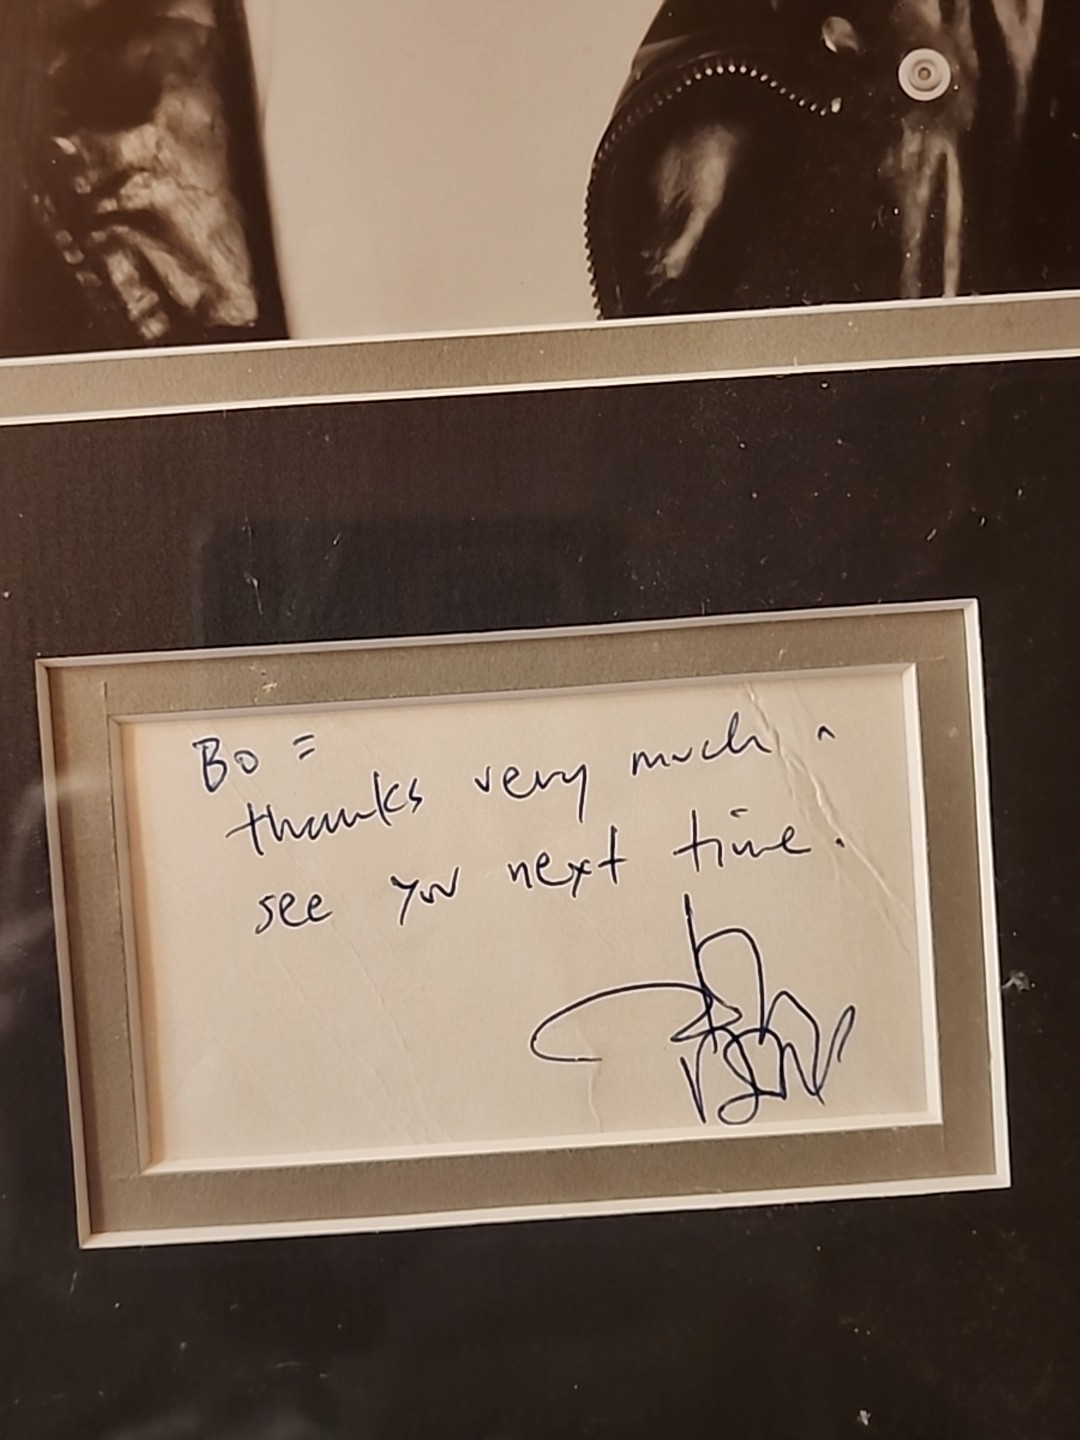 Bo =
thanks very much.
see you next time.